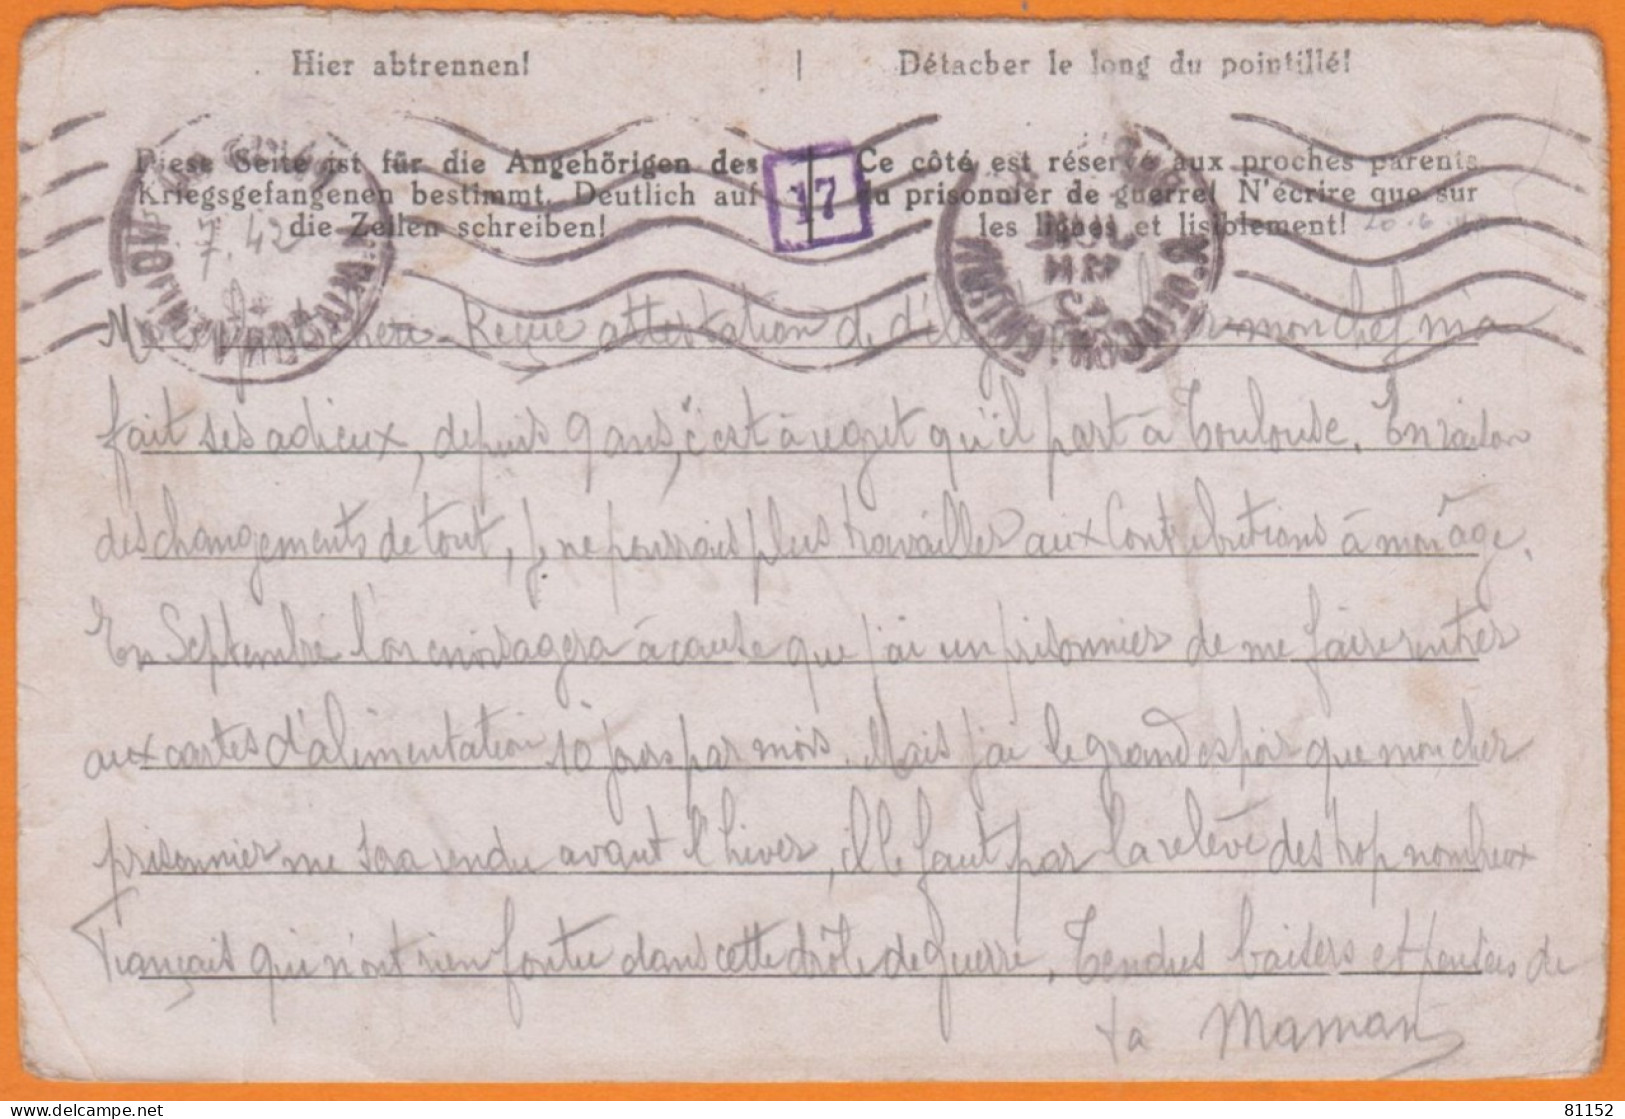 Hier abtrennen! | Détacher le long du pointillé!
Diese Seite ist für die Angehörigen des
Kriegsgefangenen bestimmt. Deutlich auf
die Zeilen schreiben!
17
Ce côté est réservé aux proches parents
du prisonnier de guerre! N'écrire que sur
les lignes et lisiblement!
7.42
cheri - Reçue attestation de mon chef m'a
fait ses adieux, depuis 9 ans, c'est à regret qu'il part à Toulouse. En raison
des changements de tout, je ne pourrais plus travailler aux Contributions à mon âge.
En Septembre l'on envisagera à cause que j'ai un prisonnier de me faire rentrer
aux cartes d'alimentation 10 jours par mois. Mais j'ai le grand espoir que mon cher
prisonnier me sera rendu avant l'hiver, il le faut par la relève des trop nombreux
Français qui n'ont rien foutu dans cette drôle de guerre. Tendres baisers et pensées de
ta Maman
81152